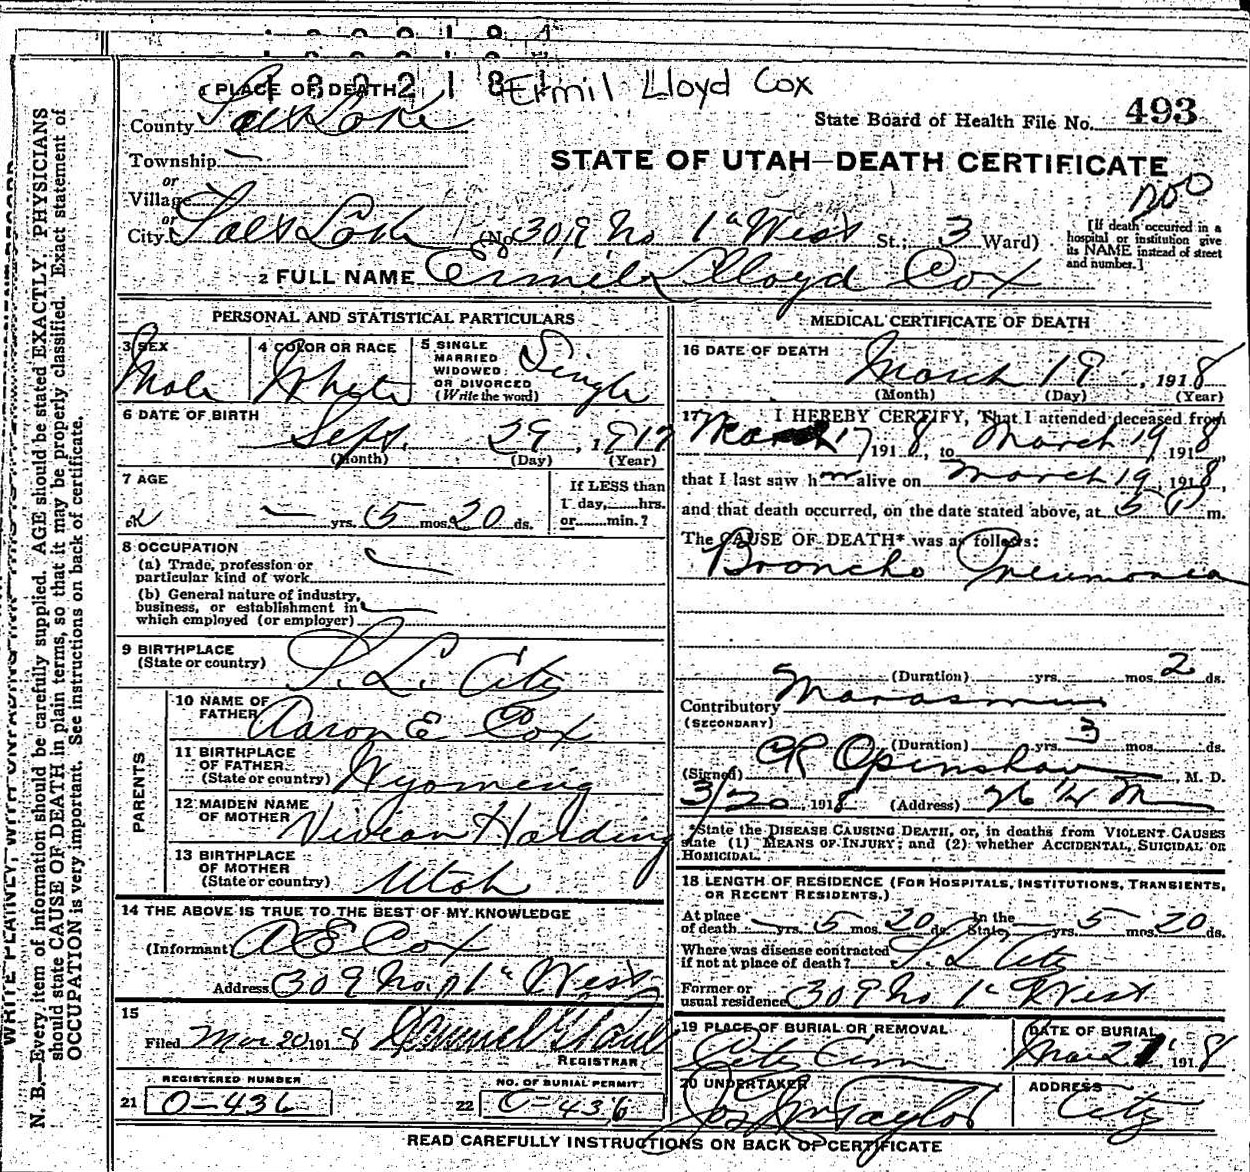 1802184
1 PLACE OF DEATH Ermil Lloyd Cox
County Salt Lake
State Board of Health File No. 493
Township —
STATE OF UTAH—DEATH CERTIFICATE
or
Village
or
City Salt Lake (No. 309 No 1st West St.; 3 Ward)
[If death occurred in a hospital or institution give its NAME instead of street and number.]
2 FULL NAME Ermil Lloyd Cox
PERSONAL AND STATISTICAL PARTICULARS
3 SEX Male
4 COLOR OR RACE White
5 SINGLE MARRIED WIDOWED OR DIVORCED (Write the word) Single
6 DATE OF BIRTH Sept. 29, 1917
(Month) (Day) (Year)
7 AGE — yrs. 5 mos. 20 ds.
If LESS than 1 day,......hrs. or......min.?
8 OCCUPATION
(a) Trade, profession or particular kind of work —
(b) General nature of industry, business, or establishment in which employed (or employer) —
9 BIRTHPLACE (State or country) S. L. City
PARENTS
10 NAME OF FATHER Aaron E Cox
11 BIRTHPLACE OF FATHER (State or country) Wyoming
12 MAIDEN NAME OF MOTHER Vivian Harding
13 BIRTHPLACE OF MOTHER (State or country) Utah
14 THE ABOVE IS TRUE TO THE BEST OF MY KNOWLEDGE
(Informant) A E Cox
Address 309 No. 1st West
15
Filed Mar 20 1918
REGISTRAR
REGISTERED NUMBER
21 O-436
NO. OF BURIAL PERMIT
22 O-436
MEDICAL CERTIFICATE OF DEATH
16 DATE OF DEATH March 19, 1918
(Month) (Day) (Year)
17 I HEREBY CERTIFY, That I attended deceased from
March 17 1918, to March 19 1918,
that I last saw h m alive on March 19, 1918,
and that death occurred, on the date stated above, at 5 P m.
The CAUSE OF DEATH* was as follows:
Broncho Pneumonia
(Duration) yrs. mos. 2 ds.
Contributory Marasmus
(SECONDARY)
(Duration) yrs. 3 mos. ds.
(Signed) CR Openshaw, M. D.
3/20, 1918 (Address)
*State the DISEASE CAUSING DEATH, or, in deaths from VIOLENT CAUSES state (1) MEANS OF INJURY; and (2) whether ACCIDENTAL, SUICIDAL OR HOMICIDAL.
18 LENGTH OF RESIDENCE (FOR HOSPITALS, INSTITUTIONS, TRANSIENTS, OR RECENT RESIDENTS.)
At place of death — yrs. 5 mos. 20 ds. In the State — yrs. 5 mos. 20 ds.
Where was disease contracted if not at place of death? S. L City
Former or usual residence 309 No 1st West
19 PLACE OF BURIAL OR REMOVAL City Cem
DATE OF BURIAL Mar 21 1918
20 UNDERTAKER Jos Wm Taylor
ADDRESS City
READ CAREFULLY INSTRUCTIONS ON BACK OF CERTIFICATE
N. B.—Every item of information should be carefully supplied. AGE should be stated EXACTLY. PHYSICIANS
should state CAUSE OF DEATH in plain terms, so that it may be properly classified. Exact statement of
OCCUPATION is very important. See instructions on back of certificate.